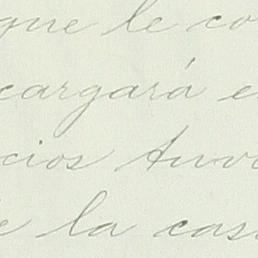 que le co
cargará e
cios tuvo
de la casa